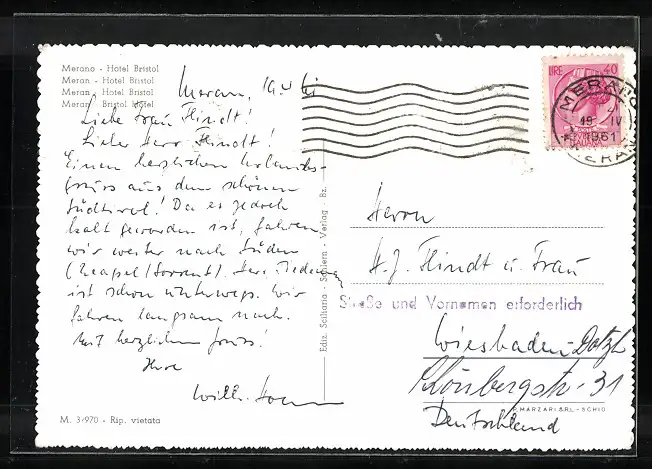 Merano - Hotel Bristol
Meran - Hotel Bristol
Meran - Hotel Bristol
Meran - Bristol Hotel
Meran,
Liebe Frau Flindt!
Lieber Herr Flindt!
Einen herzlichen Urlaubs-
gruss aus dem schönen
Südtirol! Da es jedoch
kalt geworden ist, fahren
wir weiter nach Süden
(Neapel/Sorrent). Herr
ist schon unterwegs. Wir
fahren langsam nach.
Mit herzlichem Gruss!
Ihre
Willi
M. 3/970 - Rip. vietata
Ediz. Solitaria - Schlern - Verlag - Bz.
LIRE 40
ITALIANA
MERANO
19 IV
1961
MERANO
Herrn
H. J. Flindt u. Frau
Straße und Vornamen erforderlich
Wiesbaden-Dotzh
Schönbergstr. 31
MARZARI S.R.L. - SCHIO
Deutschland